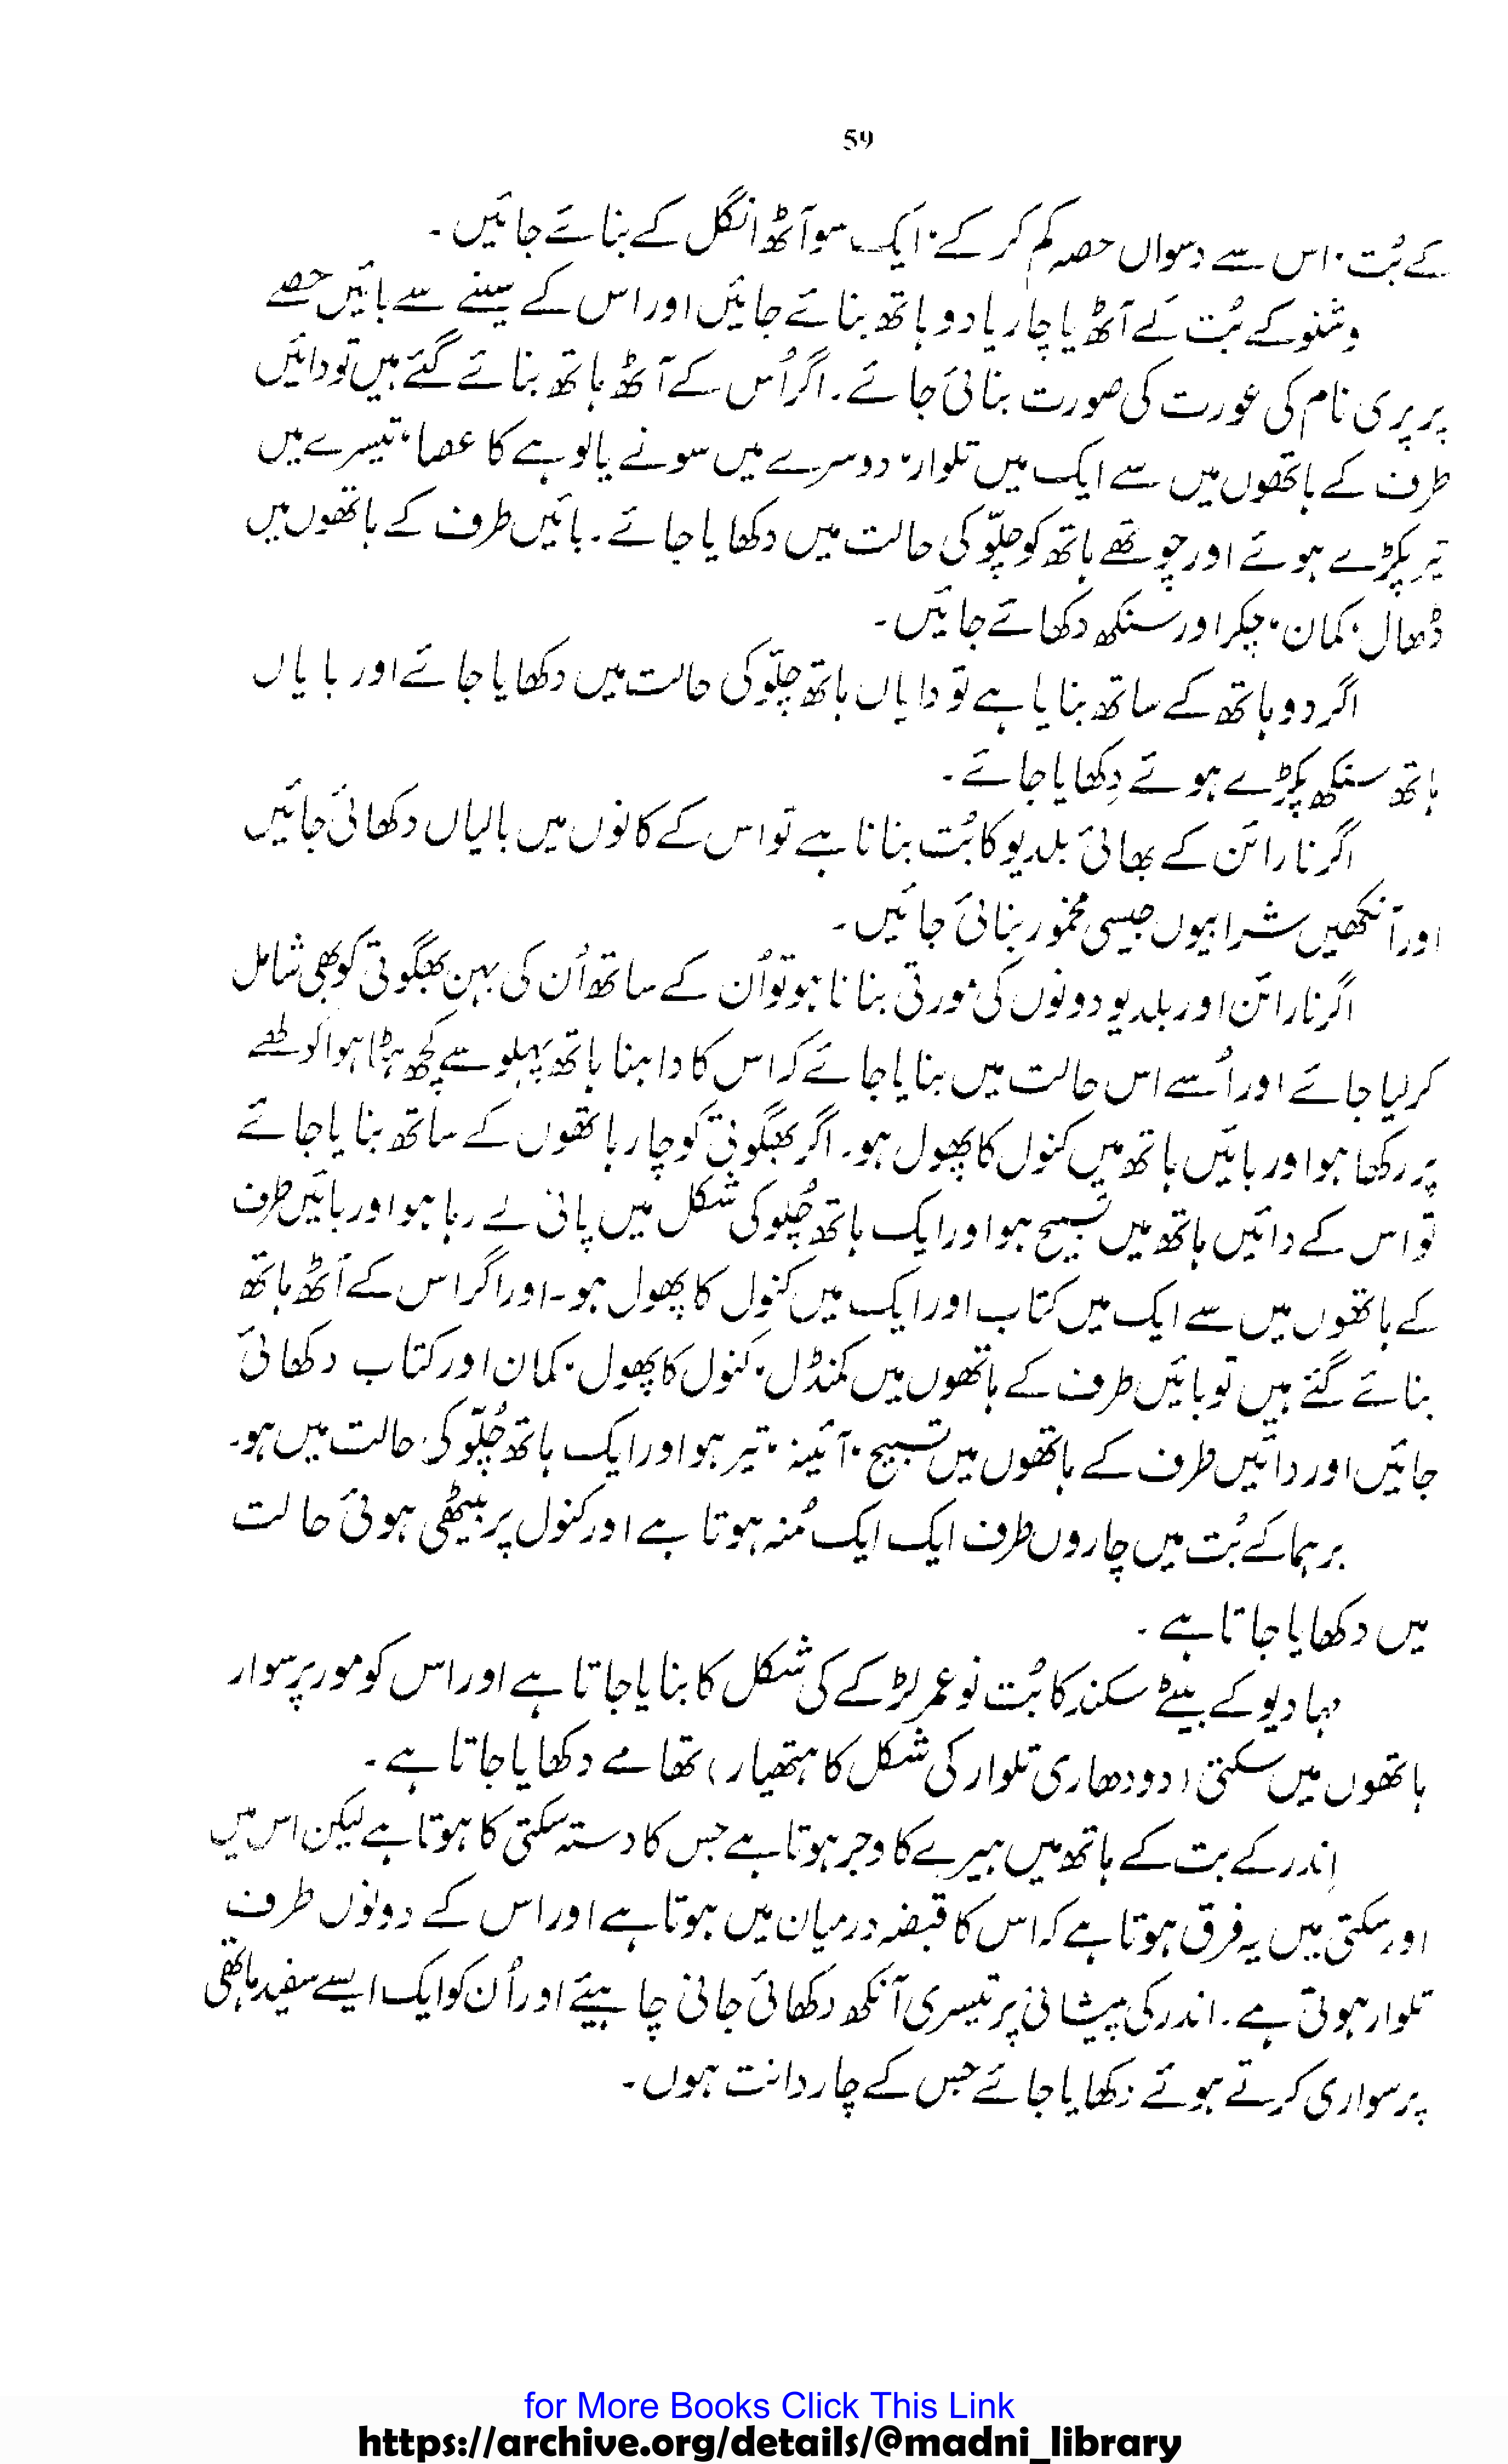 59
کے بُت، اس سے دسواں حصہ کم کر کے، ایک سو آٹھ انگل کے بنائے جائیں۔
وشنو کے بُت کے آٹھ یا چار یا دو ہاتھ بنائے جائیں اور اس کے سینے سے بائیں حصے
پر پری نام کی عورت کی صورت بنائی جائے۔ اگر اُس کے آٹھ ہاتھ بنائے گئے ہیں تو دائیں
طرف کے ہاتھوں میں سے ایک میں تلوار، دوسرے میں سونے یا لوہے کا عصا، تیسرے میں
تیر پکڑے ہوئے اور چوتھے ہاتھ کو چلّو کی حالت میں دکھایا جائے۔ بائیں طرف کے ہاتھوں میں
ڈھال، کمان، چکر اور سنکھ دکھائے جائیں۔
اگر دو ہاتھ کے ساتھ بنایا ہے تو دایاں ہاتھ چلّو کی حالت میں دکھایا جائے اور بایاں
ہاتھ سنکھ پکڑے ہوئے دِکھایا جائے۔
اگر نارائن کے بھائی بلدیو کا بُت بنانا ہے تو اس کے کانوں میں بالیاں دکھائی جائیں
اور آنکھیں شرابیوں جیسی مخمور بنائی جائیں۔
اگر نارائن اور بلدیو دونوں کی مورتی بنانا ہو تو اُن کے ساتھ اُن کی بہن بھگوتی کو بھی شامل
کر لیا جائے اور اُسے اس حالت میں بنایا جائے کہ اس کا داہنا ہاتھ پہلو سے کچھ ہٹا ہوا کولھے
پر رکھا ہو اور بائیں ہاتھ میں کنول کا پھول ہو۔ اگر بھگوتی کو چار ہاتھوں کے ساتھ بنایا جائے
تو اس کے دائیں ہاتھ میں تسبیح ہو اور ایک ہاتھ چُلو کی شکل میں پانی لے رہا ہو اور بائیں طرف
کے ہاتھوں میں سے ایک میں کتاب اور ایک میں کنول کا پھول ہو۔ اور اگر اس کے آٹھ ہاتھ
بنائے گئے ہیں تو بائیں طرف کے ہاتھوں میں کمنڈل، کنول کا پھول، کمان اور کتاب دکھائی
جائیں اور دائیں طرف کے ہاتھوں میں تسبیح، آئینہ، تیر ہو اور ایک ہاتھ چُلّو کی حالت میں ہو۔
برہما کے بُت میں چاروں طرف ایک ایک مُنہ ہوتا ہے اور کنول پر بیٹھی ہوئی حالت
میں دکھایا جاتا ہے۔
مہادیو کے بیٹے سکند کا بُت نو عمر لڑکے کی شکل کا بنایا جاتا ہے اور اس کو مور پر سوار
ہاتھوں میں سکتی (دودھاری تلوار کی شکل کا ہتھیار) تھامے دکھایا جاتا ہے۔
اِندر کے بت کے ہاتھ میں ہیرے کا وجر ہوتا ہے جس کا دستہ سکتی کا ہوتا ہے لیکن اس میں
اور سکتی میں یہ فرق ہوتا ہے کہ اس کا قبضہ درمیان میں ہوتا ہے اور اس کے دونوں طرف
تلوار ہوتی ہے۔ اندر کی پیشانی پر تیسری آنکھ دکھائی جانی چاہیئے اور اُن کو ایک ایسے سفید ہاتھی
پر سواری کرتے ہوئے دکھایا جائے جس کے چار دانت ہوں۔
for More Books Click This Link
https://archive.org/details/@madni_library